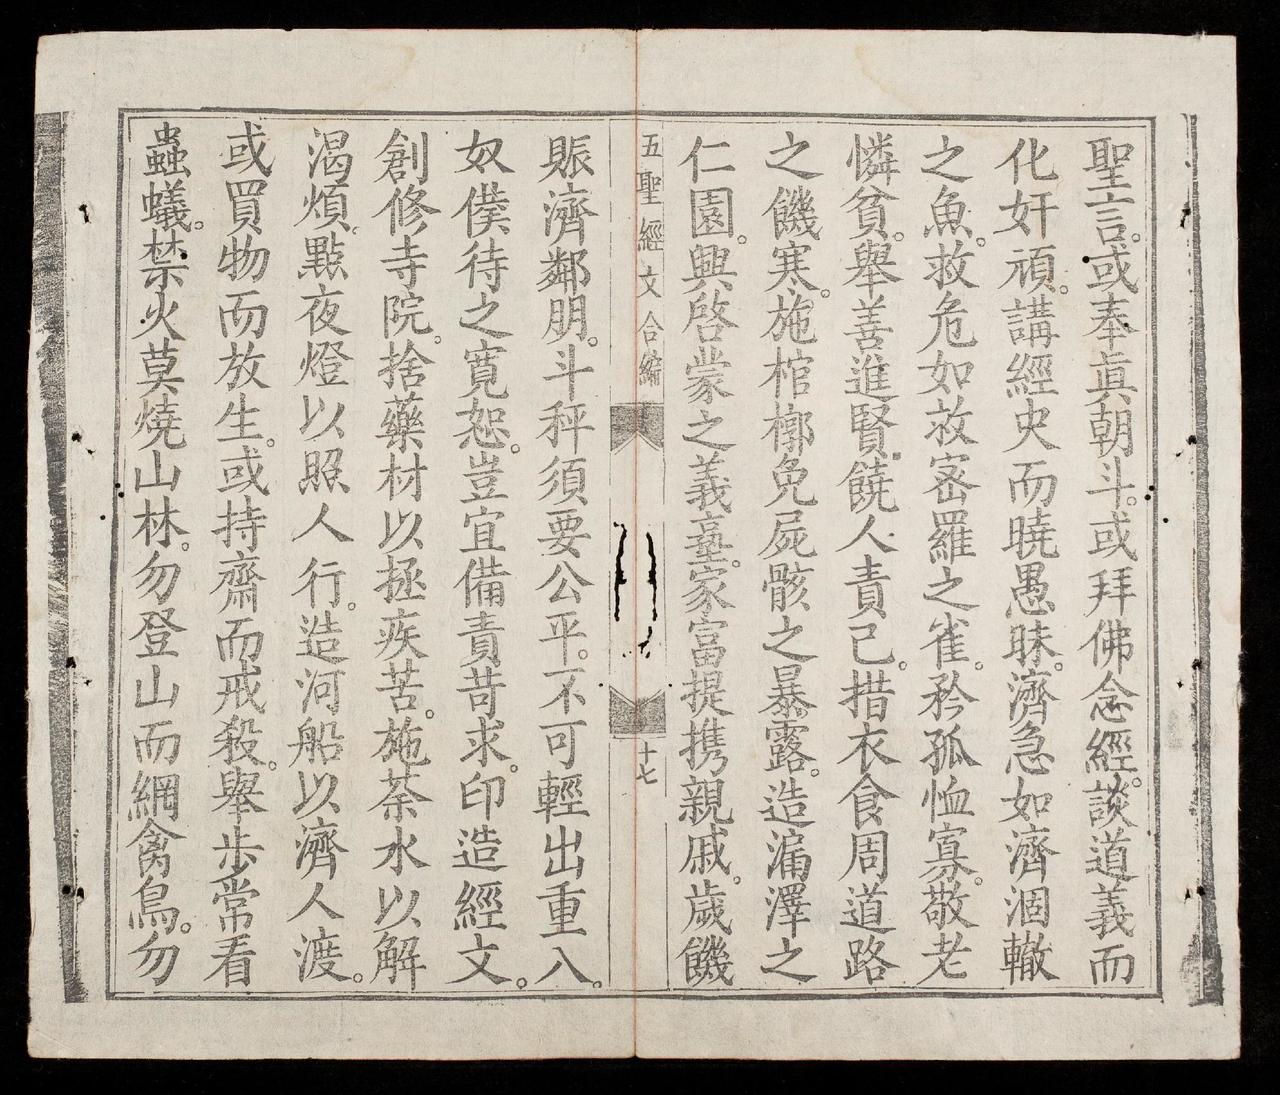 聖言。或奉眞朝斗。或拜佛念經。談道義而
化奸頑。講經史而曉愚昧。濟急如濟涸轍
之魚。救危如救宻羅之雀。矜孤恤寡。敬老
憐貧。舉善進賢。饒人責己。措衣食周道路
之饑寒。施棺槨免屍骸之暴露。造漏澤之
仁園。興啓蒙之義塾。家富提携親戚。歲饑
五聖經文合編
十七
賑濟鄰朋。斗秤須要公平。不可輕出重入。
奴僕待之寛恕。豈宜備責苛求。印造經文。
創修寺院。捨藥材以拯疾苦。施茶水以解
渴煩。點夜燈以照人行。造河船以濟人渡。
或買物而放生。或持齋而戒殺。舉步常看
蟲蟻。禁火莫燒山林。勿登山而網禽鳥。勿